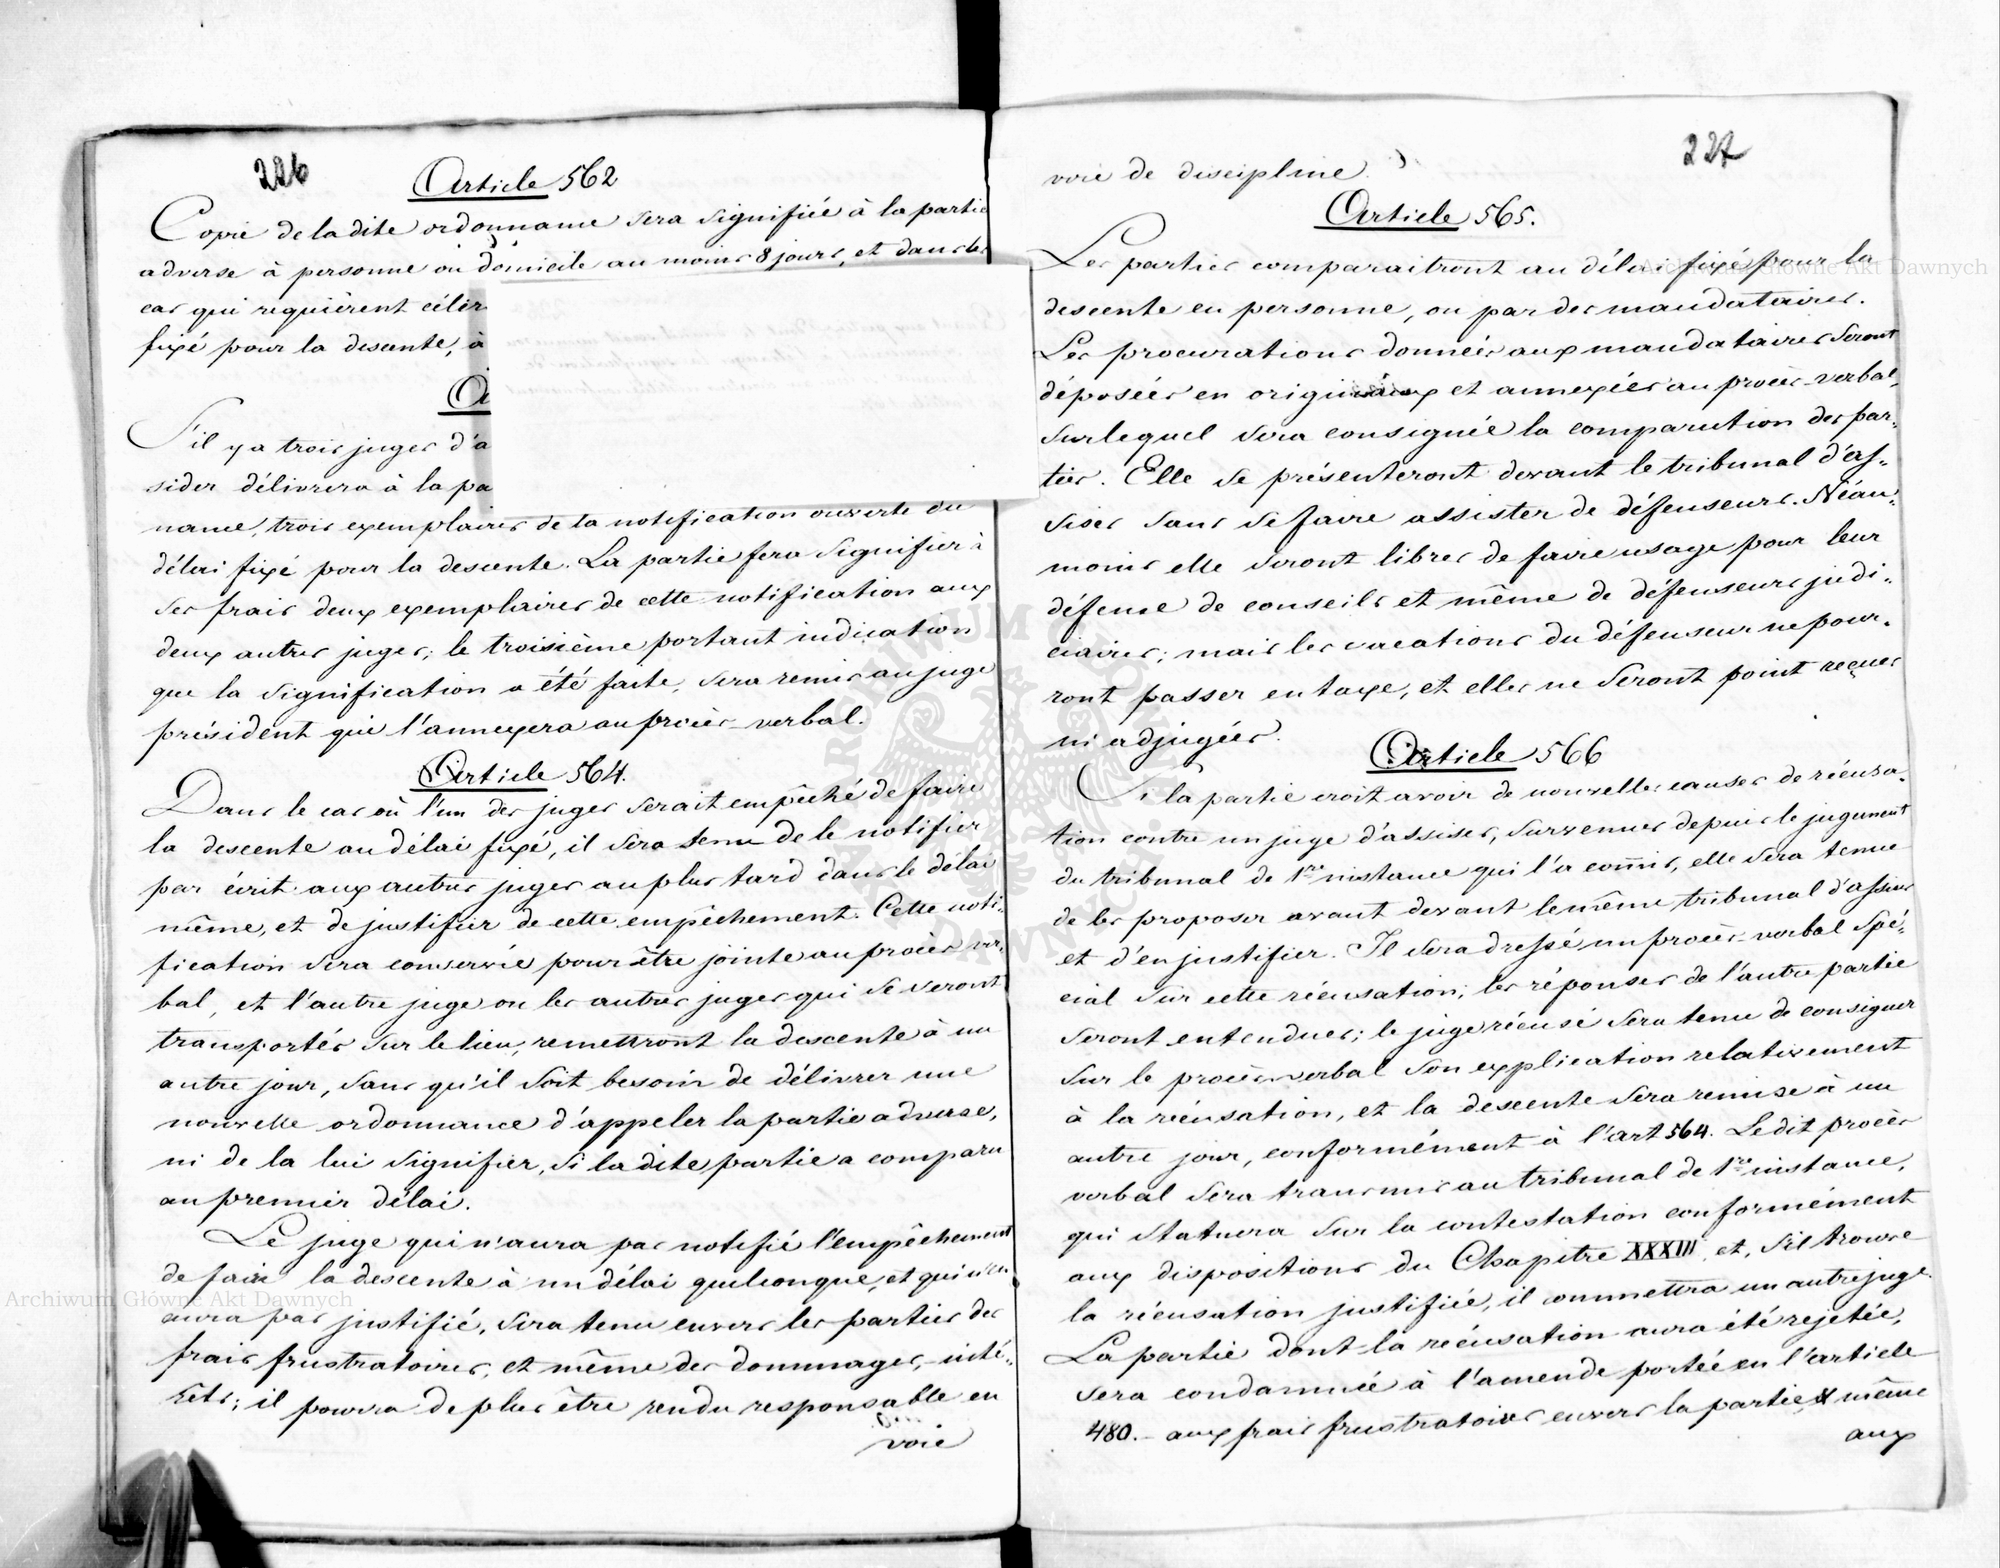 226
Article 562
Copie de la dite ordonnance sera signifiée à la partie
adverse à personne ou domicile au moins 8 jours, et dans les
cas qui requièrent célér
fixé pour la descente, à
A
S'il y a trois juges d'a
sider délivrera à la pa
nance, trois exemplaires de la notification ouverte du
délai fixé pour la descente. La partie fera signifier à
ses frais deux exemplaires de cette notification aux
deux autres juges; le troisième portant indication
que la signification a été faite, sera remis au juge
président qui l'annexera au procès-verbal.
Article 564.
Dans le cas où l'un des juges serait empêché de faire
la descente au délai fixé, il sera tenu de le notifier
par écrit aux autres juges au plus tard dans le délai
même, et de justifier de cette empêchement. Cette noti-
fication sera conservée pour être jointe au procès ver-
bal, et l'autre juge ou les autres juges qui se seront
transportés sur le lieu, remettront la descente à un
autre jour, sans qu'il soit besoin de délivrer une
nouvelle ordonnance d'appeler la partie adverse,
ni de la lui signifier, si la dite partie a comparu
au premier délai.
Le juge qui n'aura pas notifié l'empêchement
de faire la descente à un délai quelconque, et qui n'en
aura pas justifié, sera tenu envers les parties des
frais frustratoires, et même des dommages, inté-
rêts; il pourra de plus être rendu responsable en
voie
227
voie de discipline.
Article 565.
Les parties comparaitront au délai fixé pour la
descente en personne, ou par des mandataires.
Les procurations données aux mandataires seront
déposées en originaux et annexées au procès-verbal,
sur lequel sera consignée la comparution des par-
ties. Elle se présenteront devant le tribunal d'as-
sises sans se faire assister de défenseurs. Néan-
moins elle seront libres de faire usage pour leur
défense de conseils et même de défenseurs judi-
ciaires; mais les vacations du défenseur ne pour-
ront passer en taxe, et elles ne seront point reçues
ni adjugées.
Article 566
Si la partie croit avoir de nouvelles causes de récusa-
tion contre un juge d'assises, survenues depuis le jugement
du tribunal de 1re instance qui l'a comis, elle sera tenue
de les proposer avant devant le même tribunal d'assises
et d'en justifier. Il sera dressé un procès-verbal spé-
cial sur cette récusation; les réponses de l'autre partie
seront entendues; le juge récusé sera tenu de consigner
sur le procès verbal son explication relativement
à la récusation, et la descente sera remise à un
autre jour, conformément à l'art 564. Le dit procès
verbal sera transmis au tribunal de 1re instance,
qui statuera sur la contestation conformément
aux dispositions du Chapitre XXXIII et, s'il trouve
la récusation justifiée, il commettra un autre juge.
La partie dont la récusation aura été rejetée,
sera condamnée à l'amende portée en l'article
480. - aux frais frustratoires envers la partie, et même
aux
Archiwum Główne Akt Dawnych
Archiwum Główne Akt Dawnych
ARCHIWUM GŁÓWNE AKT DAWNYCH